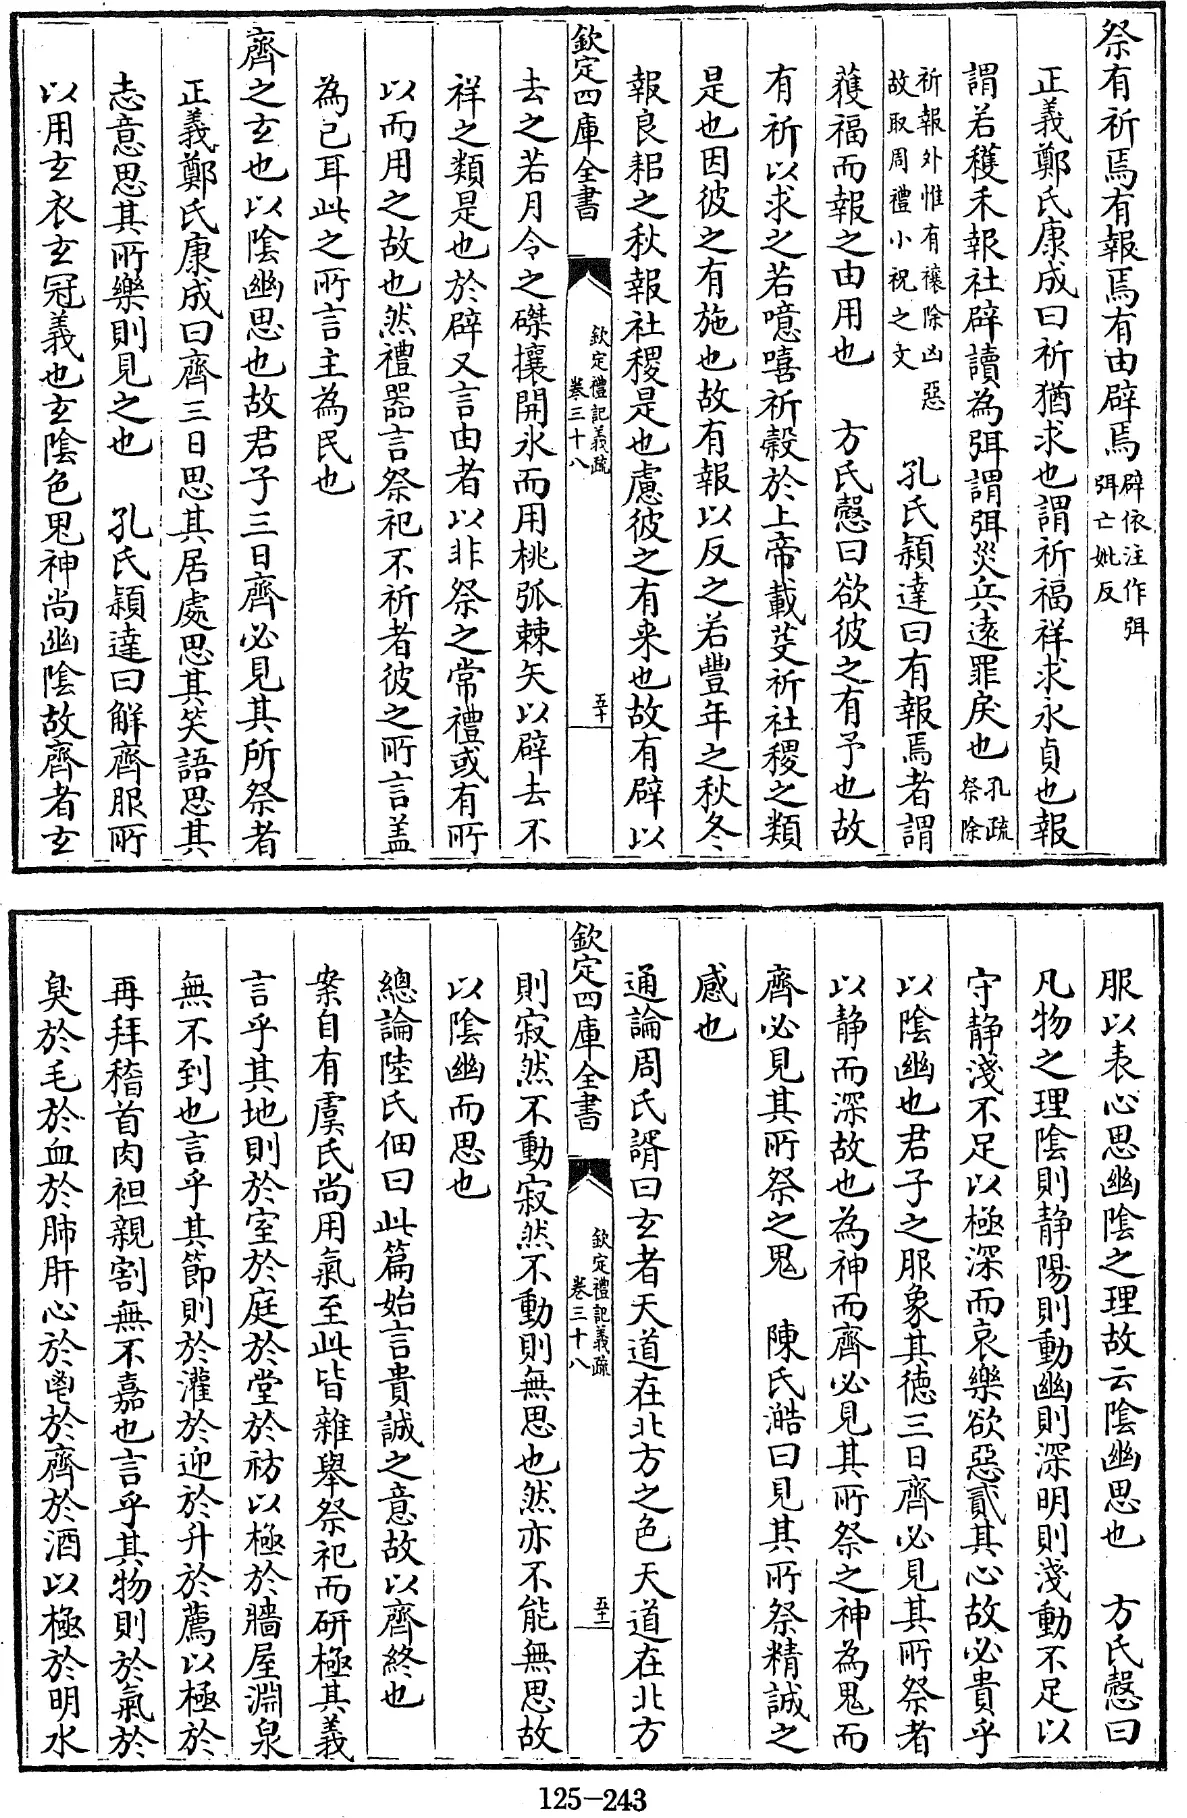 祭有祈焉有報焉有由辟焉辟依注作弭弭亡妣反
正義鄭氏康成曰祈猶求也謂祈福祥求永貞也報
謂若穫禾報社辟讀為弭謂弭災兵逺罪戾也孔疏祭除
祈報外惟有禳除凶惡故取周禮小祝之文 孔氏穎達曰有報焉者謂
獲福而報之由用也 方氏慤曰欲彼之有予也故
有祈以求之若噫嘻祈榖於上帝載芟祈社稷之類
是也因彼之有施也故有報以反之若豐年之秋冬
報良耜之秋報社稷是也慮彼之有来也故有辟以
欽定四庫全書
欽定禮記義疏
卷三十八
五十
去之若月令之磔攘開氷而用桃弧棘矢以辟去不
祥之類是也於辟又言由者以非祭之常禮或有所
以而用之故也然禮器言祭祀不祈者彼之所言盖
為已耳此之所言主為民也
齊之玄也以隂幽思也故君子三日齊必見其所祭者
正義鄭氏康成曰齊三日思其居處思其笑語思其
志意思其所樂則見之也 孔氏穎達曰解齊服所
以用玄衣玄冠義也玄隂色鬼神尚幽隂故齊者玄
服以表心思幽隂之理故云隂幽思也 方氏慤曰
凡物之理隂則静陽則動幽則深明則淺動不足以
守静淺不足以極深而哀樂欲惡貳其心故必貴乎
以隂幽也君子之服象其徳三日齊必見其所祭者
以静而深故也為神而齊必見其所祭之神為鬼而
齊必見其所祭之鬼 陳氏澔曰見其所祭精誠之
感也
通論周氏諝曰玄者天道在北方之色天道在北方
欽定四庫全書
欽定禮記義疏
卷三十八
五十一
則寂然不動寂然不動則無思也然亦不能無思故
以隂幽而思也
總論陸氏佃曰此篇始言貴誠之意故以齊終也
案自有虞氏尚用氣至此皆雜舉祭祀而研極其義
言乎其地則於室於庭於堂於祊以極於牆屋淵泉
無不到也言乎其節則於灌於迎於升於薦以極於
再拜稽首肉袒親割無不嘉也言乎其物則於氣於
臭於毛於血於肺肝心於鬯於齊於酒以極於明水
125-243